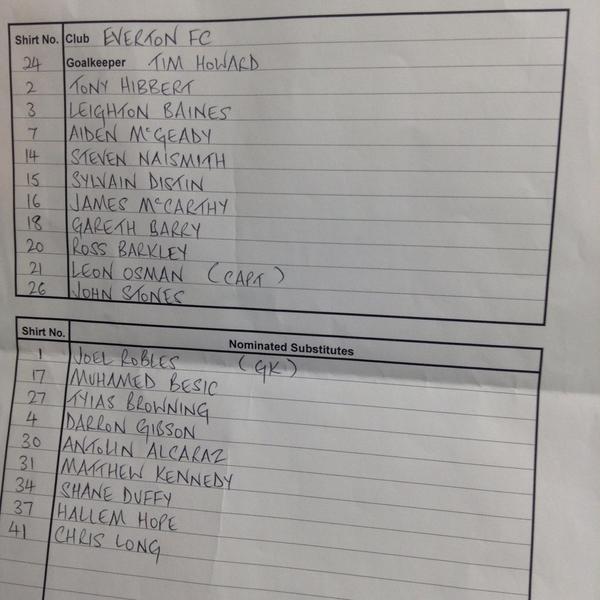 Shirt No. Club EVERTON FC
24 Goalkeeper TIM HOWARD
2 TONY HIBBERT
3 LEIGHTON BAINES
7 AIDEN McGEADY
14 STEVEN NAISMITH
15 SYLVAIN DISTIN
16 JAMES McCARTHY
18 GARETH BARRY
20 ROSS BARKLEY
21 LEON OSMAN (CAPT)
26 JOHN STONES
Shirt No. Nominated Substitutes
1 JOEL ROBLES (GK)
17 MUHAMED BESIC
27 TYIAS BROWNING
4 DARRON GIBSON
30 ANTOLIN ALCARAZ
31 MATTHEW KENNEDY
34 SHANE DUFFY
37 HALLEM HOPE
41 CHRIS LONG